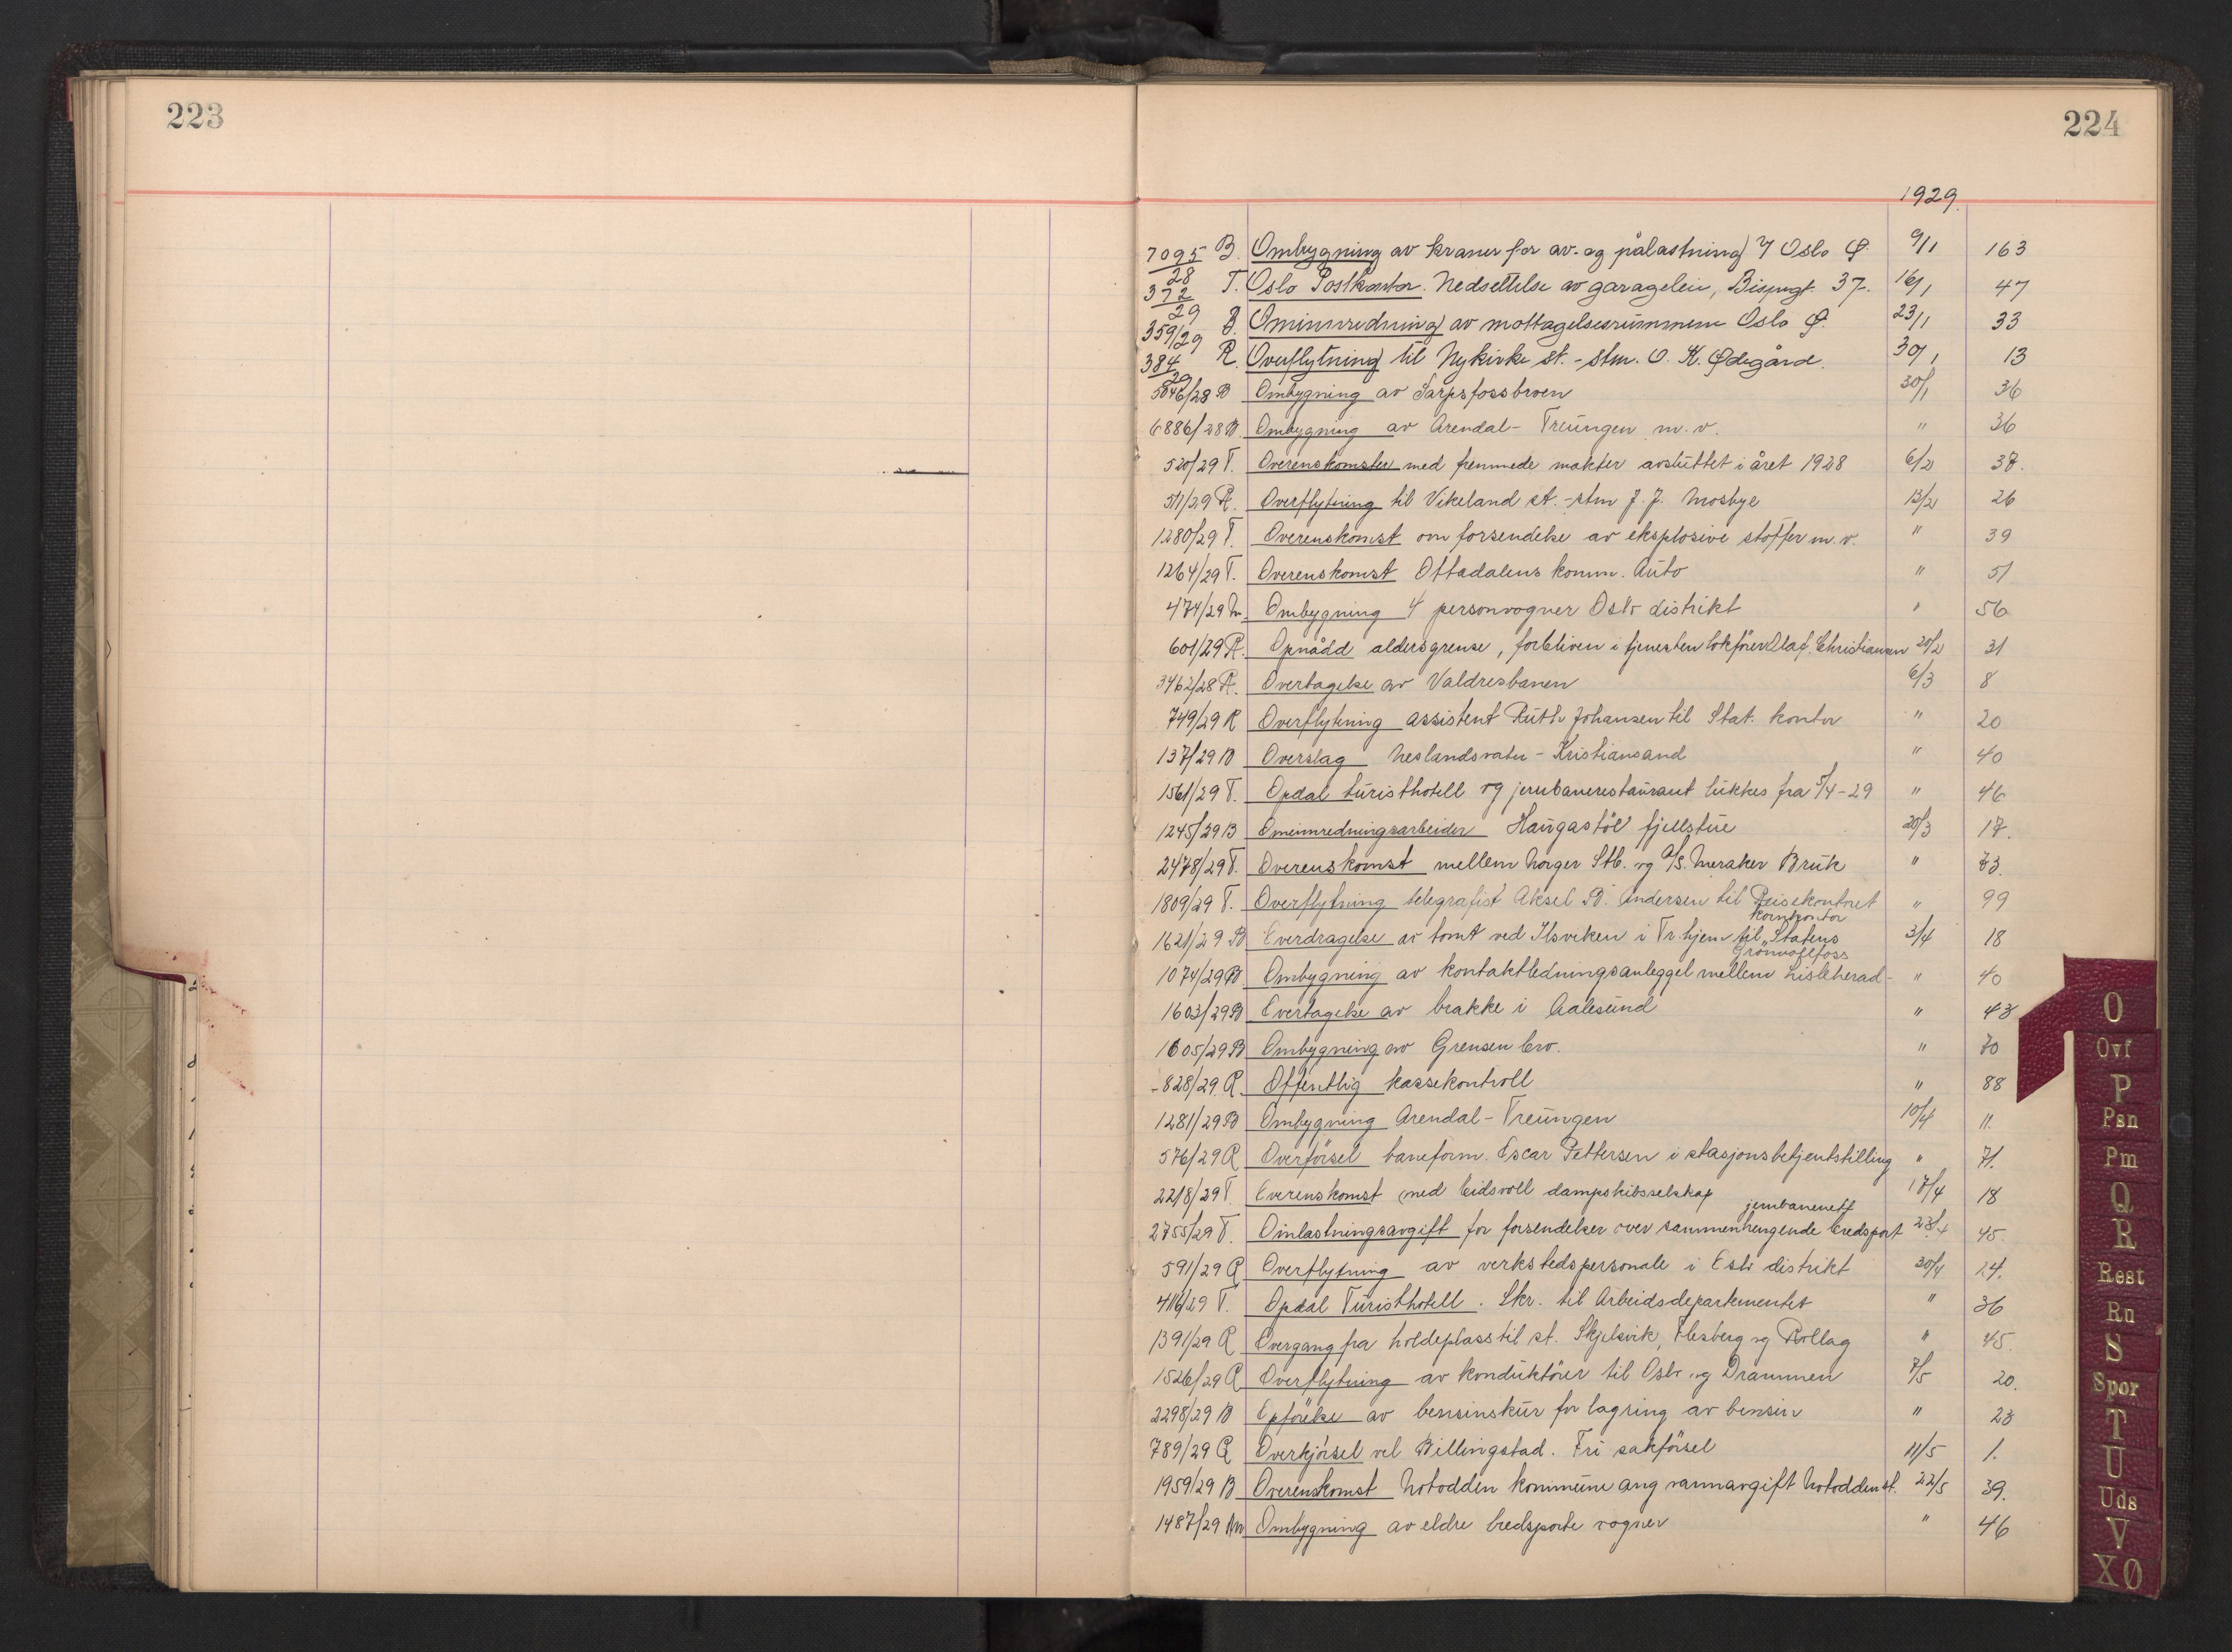 223
224
1929
7095/28 B. Ombygning av kraner for av- og pålastning Oslo Ø. 9/1 163
372/29 T. Oslo Postkontor. Nedsettelse av garageleie, Bispegt. 37. 16/1 47
359/29 B. Ominnredning av mottagelsesrummene Oslo Ø. 23/1 33
384/29 R. Overflytning til Nykirke st. - stm. O. K. Ødegård. 30/1 13
5046/28 B Ombygning av Sarpsfossbroen 30/1 36
6886/28 B. Ombygning av Arendal - Treungen m. v. " 36
520/29 T. Overenskomster med fremmede makter avsluttet i året 1928 6/2 37.
511/29 R. Overflytning til Vikeland st. - stm J. J. Mosbye 13/2 26
1280/29 T. Overenskomst om forsendelse av eksplosive stoffer m. v. " 39
1264/29 T. Overenskomst Ottadalens komm. Auto " 51
474/29 M. Ombygning 4 personvogner Oslo distrikt " 56
601/29 R. Opnådd aldersgrense, forbliven i tjenesten lokfører Olaf Christiansen 20/2 31
3462/28 R. Overtagelse av Valdresbanen 6/3 8
749/29 R Overflytning assistent Ruth Johansen til Stat. kontor " 20
137/29 B Overslag Neslandsvatn - Kristiansand " 40
1561/29 T. Opdal turisthotell og jernbanerestaurant lukkes fra 5/4-29 " 46
1245/29 B Ominnredningsarbeider Haugastöl fjellstue 20/3 17.
2478/29 T. Overenskomst mellem Norges Stb. og A/S. Meraker Bruk " 73.
1809/29 T. Overflytning telegrafist Aksel B. Andersen til Reisekontoret " 99
kornkontor
1621/29 B Overdragelse av tomt ved Ilsviken i Tr.hjem til Statens 3/4 18
Grönvollfoss
1074/29 B Ombygning av kontaktledningsanlegget mellem Lisleherad- " 40
1603/29 B Overtagelse av brakke i Aalesund " 43
1605/29 B Ombygning av Grensen bro. " 70
828/29 R. Offentlig kassekontroll " 88
1281/29 B Ombygning Arendal - Treungen 10/4 11.
576/29 R Overförsel baneform. Oscar Pettersen i stasjonsbetjentstilling " 71.
2218/29 T. Overenskomst med Eidsvoll dampskibsselskap 17/4 18
jernbanenett
2755/29 T. Omlastningsavgift for forsendelser over sammenhengende bredsport 23/4 45.
591/29 R Overflytning av verkstedspersonale i Oslo distrikt 30/4 24.
4116/29 T. Opdal Turisthotell. Skr. til Arbeidsdepartementet " 36
1391/29 R Overgang fra holdeplass til st. Skjelsvik, Flesberg og Rollag " 45.
1526/29 R Overflytning av konduktörer til Oslo og Drammen 7/5 20.
2298/29 B Opförelse av bensinskur for lagring av bensin " 23
789/29 R Overkjörsel vel Billingstad. Fri sakförsel 11/5 1.
1959/29 B Overenskomst Notodden kommune ang vannavgift Notodden st. 22/5 39.
1487/29 M Ombygning av eldre bredsporte vogner " 46
O
Ovf
P
Psn
Pm
Q
R
Rest
Rn
S
Spor
T
U
Uds
V
XØ